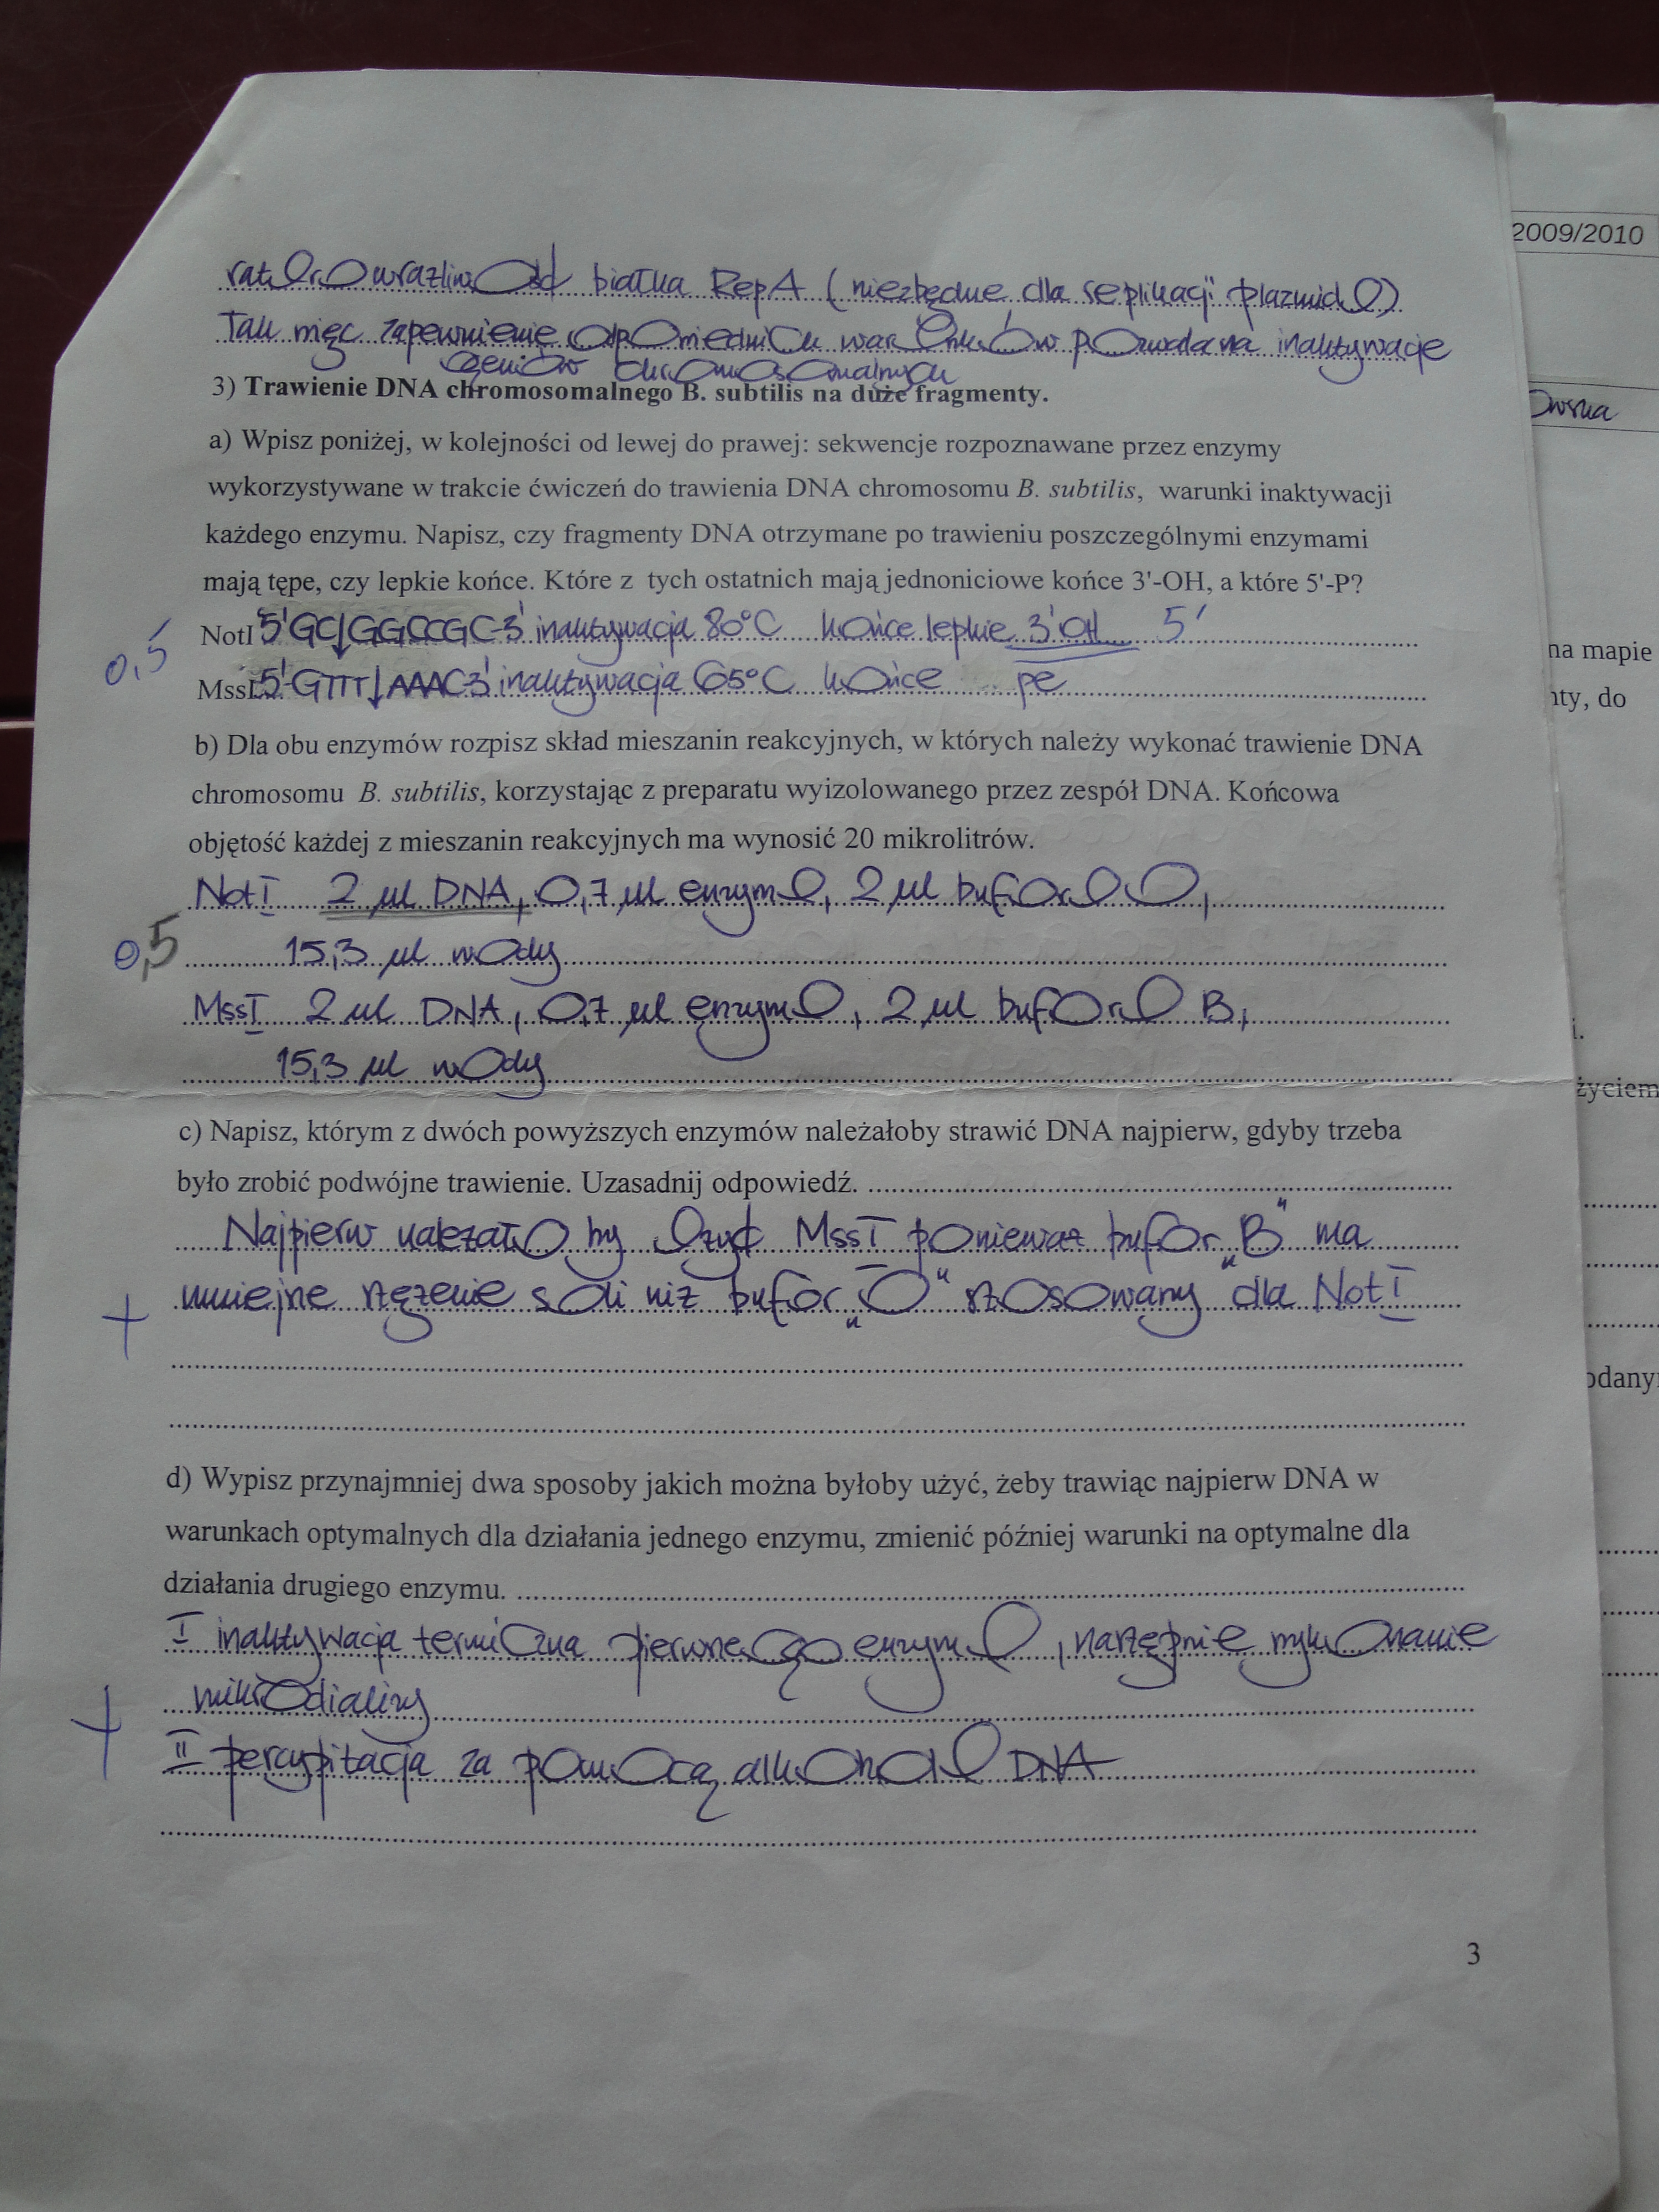 raturowrażliwość białka RepA (niezbędne dla replikacji plazmidu)
Tak więc zapewnienie odpowiednich warunków pozwala na inaktywację
genów chromosomalnych
3) Trawienie DNA chromosomalnego B. subtilis na duże fragmenty.
a) Wpisz poniżej, w kolejności od lewej do prawej: sekwencje rozpoznawane przez enzymy
wykorzystywane w trakcie ćwiczeń do trawienia DNA chromosomu B. subtilis, warunki inaktywacji
każdego enzymu. Napisz, czy fragmenty DNA otrzymane po trawieniu poszczególnymi enzymami
mają tępe, czy lepkie końce. Które z tych ostatnich mają jednoniciowe końce 3'-OH, a które 5'-P?
NotI 5'GC↓GGCCGC-3' inaktywacja 80°C końce lepkie 3'OH 5'
0,5
MssI 5'-GTTT↓AAAC-3' inaktywacja 65°C końce pe
b) Dla obu enzymów rozpisz skład mieszanin reakcyjnych, w których należy wykonać trawienie DNA
chromosomu B. subtilis, korzystając z preparatu wyizolowanego przez zespół DNA. Końcowa
objętość każdej z mieszanin reakcyjnych ma wynosić 20 mikrolitrów.
NotI 2 µl DNA, 0,7 µl enzymu, 2 µl buforu O,
0,5 15,3 µl wody
MssI 2 µl DNA, 0,7 µl enzymu, 2 µl buforu B,
15,3 µl wody
c) Napisz, którym z dwóch powyższych enzymów należałoby strawić DNA najpierw, gdyby trzeba
było zrobić podwójne trawienie. Uzasadnij odpowiedź.
Najpierw należało by użyć MssI ponieważ bufor „B" ma
mniejsze stężenie soli niż bufor „O" stosowany dla NotI
+
d) Wypisz przynajmniej dwa sposoby jakich można byłoby użyć, żeby trawiąc najpierw DNA w
warunkach optymalnych dla działania jednego enzymu, zmienić później warunki na optymalne dla
działania drugiego enzymu.
I inaktywacja termiczna pierwszego enzymu, następnie wykonanie
mikrodializy
+
II percypitacja za pomocą alkoholu DNA
3
2009/2010
owska
na mapie
nty, do
i.
życiem
odany